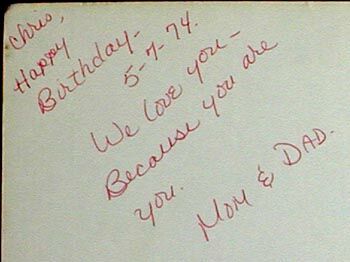 Chris,
Happy
Birthday-
5-7-74.
We love you-
Because you are
you.
Mom & DAD.